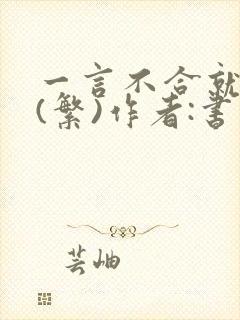 一言不合就
(繁)作者:書
芸岫